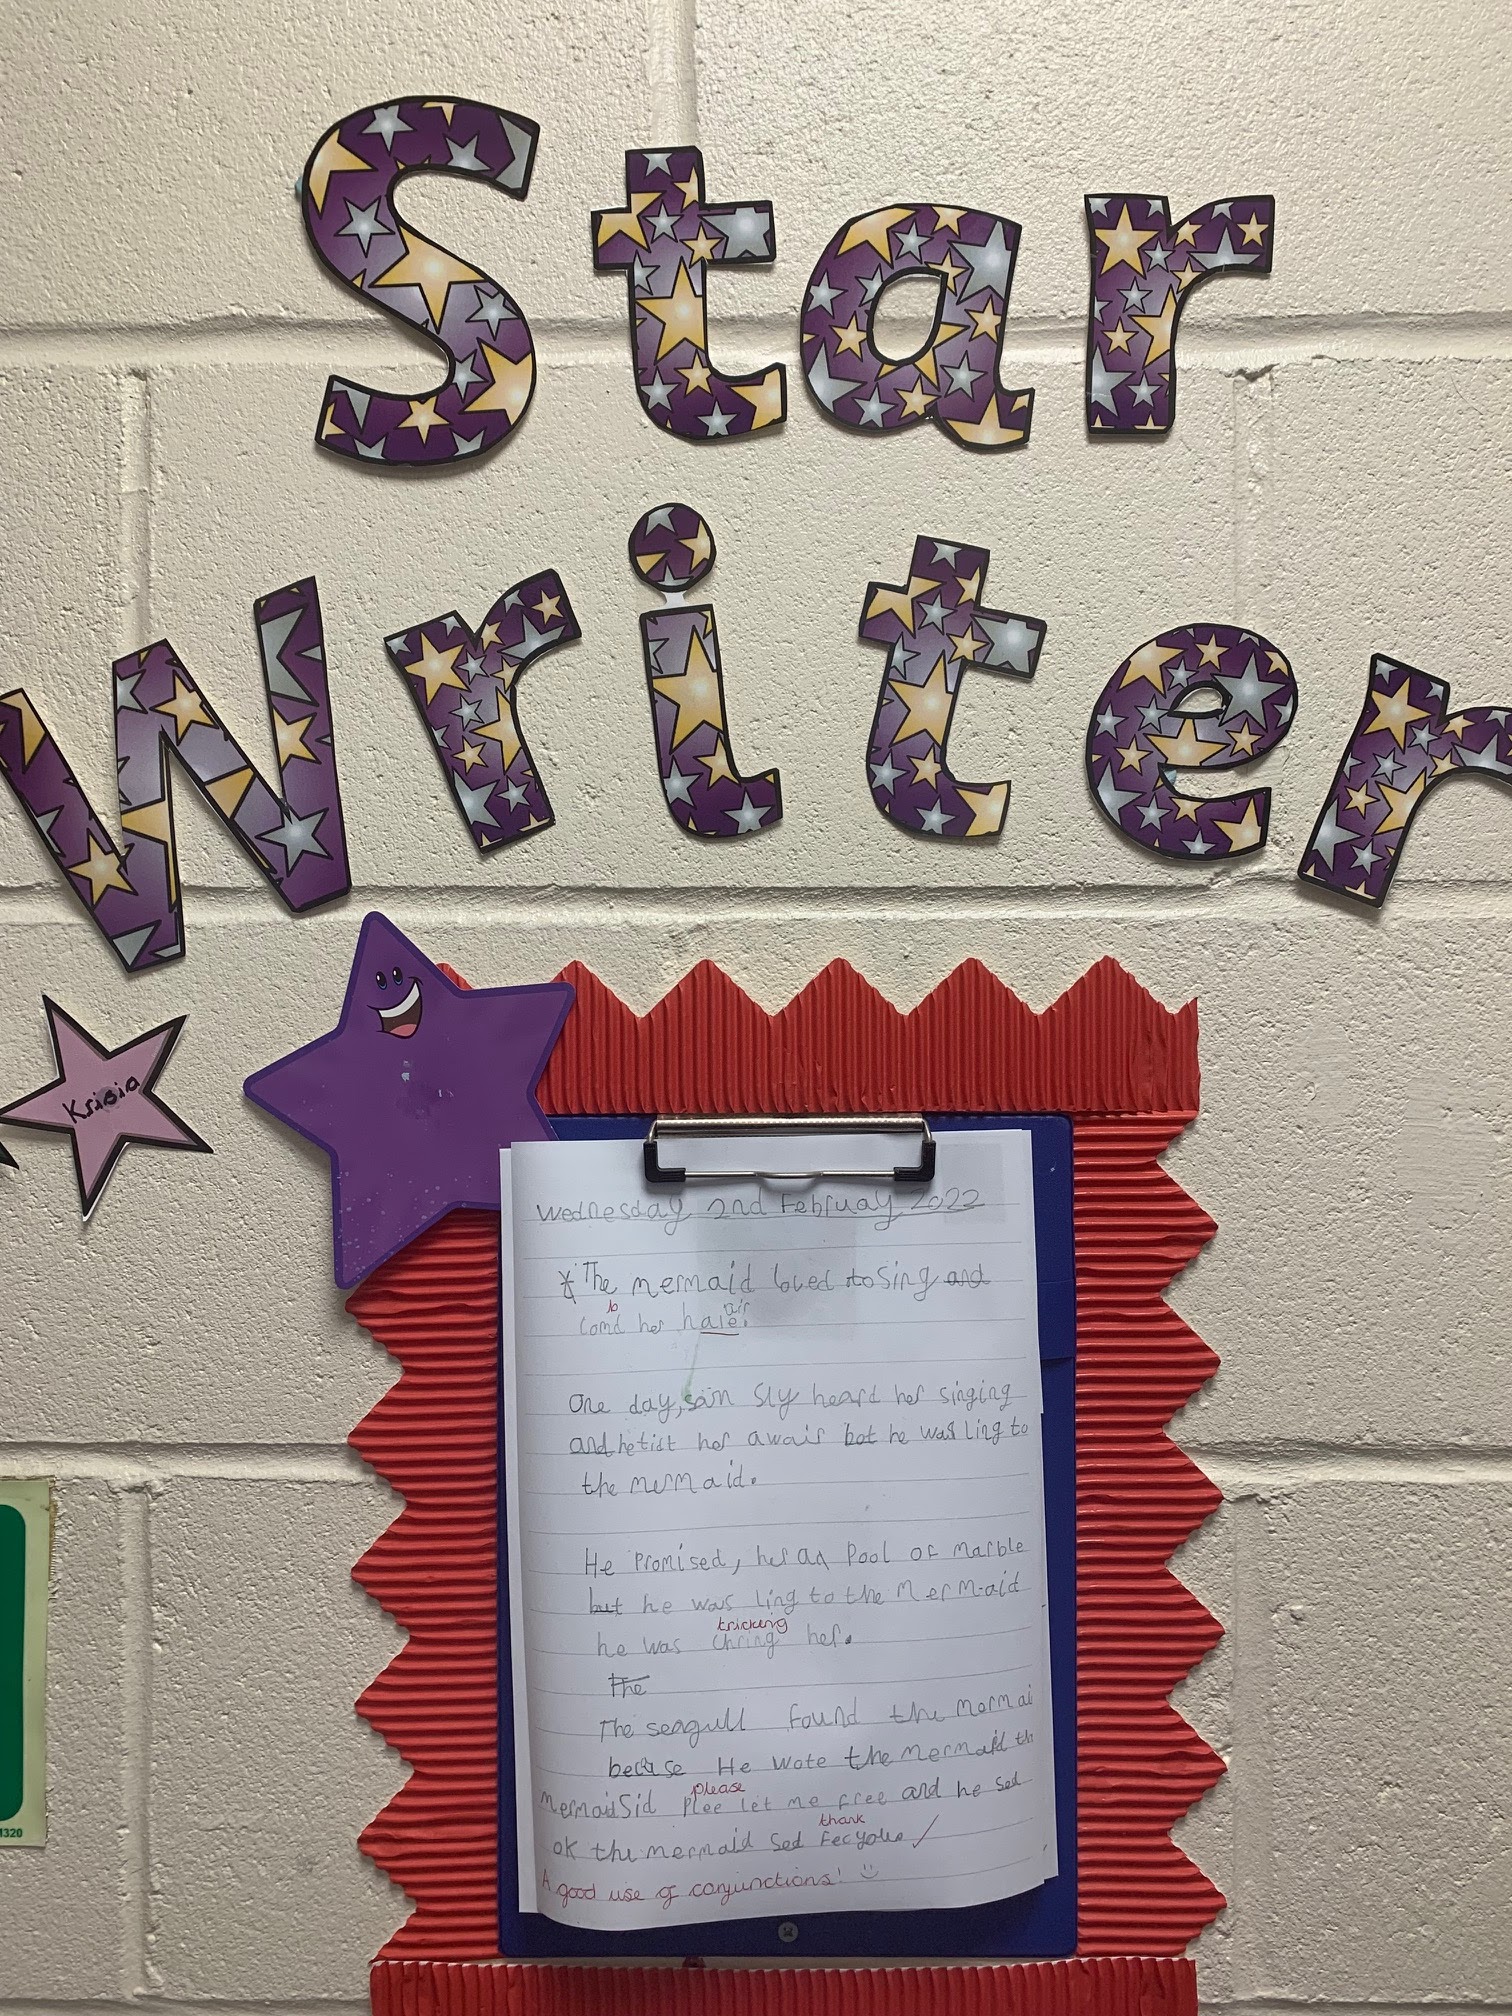 Star
Writer
Krisia
Wednesday 2nd Februay 2022
The mermaid loved to Sing and
b
comd her haie.
air
One day, sam Sly heard her singing
and he tist her awair bot he was ling to
the mermaid.
He Promised, her an Pool of marble
but he was ling to the Mermaid
tricking
he was chring her.
The
The seagull found the mormai
becuse He wote the mermaid th
please
mermaid Sid plee let me free and he sed
thank
ok the mermaid sed Fecyoue
A good use of conjunctions!
1320